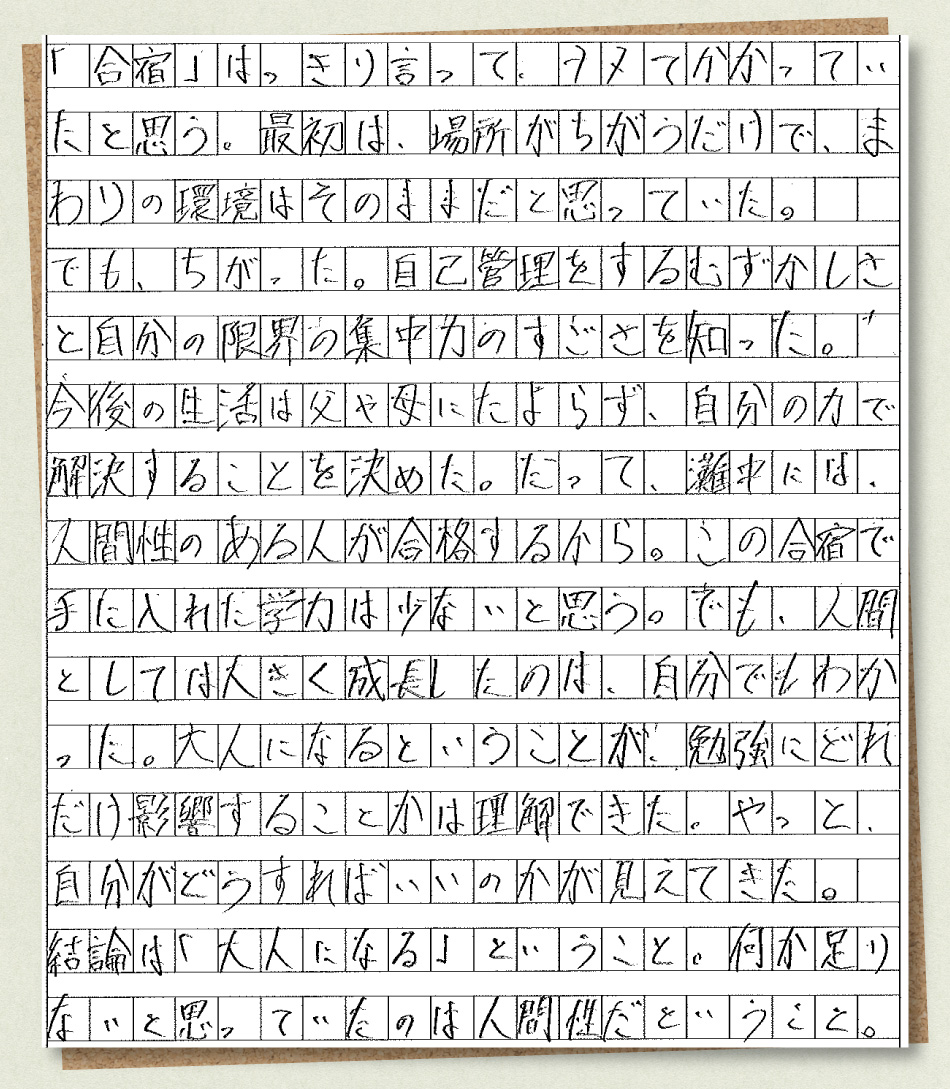 「合宿」はっきり言って、ナメてかかってい
たと思う。最初は、場所がちがうだけで、ま
わりの環境はそのままだと思っていた。
でも、ちがった。自己管理をするむずかしさ
と自分の限界の集中力のすごさを知った。
今後の生活は父や母にたよらず、自分の力で
解決することを決めた。だって、灘中には、
人間性のある人が合格するから。この合宿で
手に入れた学力は少ないと思う。でも、人間
としては大きく成長したのは、自分でもわか
った。大人になるということが、勉強にどれ
だけ影響することかは理解できた。やっと、
自分がどうすればいいのかが見えてきた。
結論は「大人になる」ということ。何か足り
ないと思っていたのは人間性だということ。